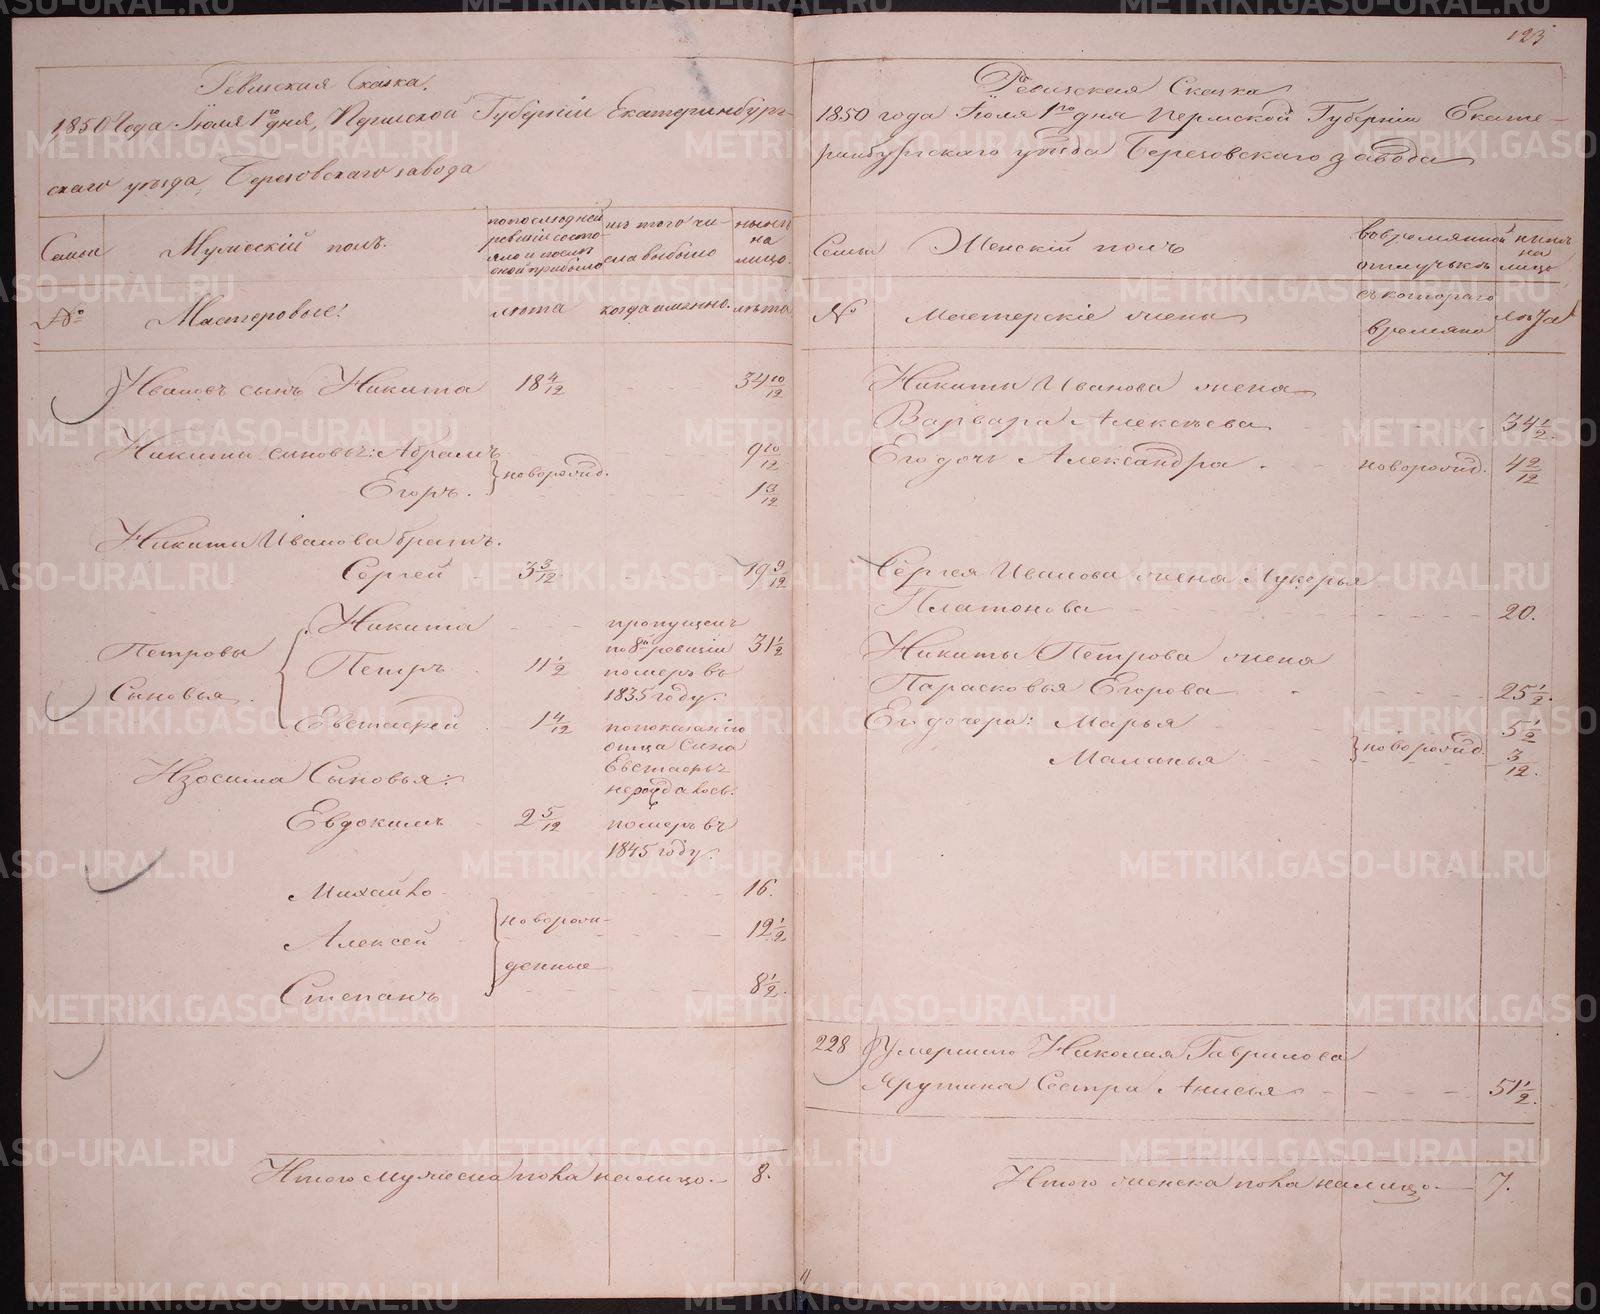 Ревизская Сказка.
1850 Года Іюля 1го дня, Пермской Губерніи Екатеринбург-
скаго уѣзда, Березовскаго завода
Семьи
Мужескій полъ.
по последней ревизіи состояло и после оной прибыло
из того числа выбыло
ныне на лицо.
№
Мастеровые:
лѣта
когда именно.
лѣта
Ивановъ сынъ Никита 18 4/12 34 10/12
Никиты сыновьъ: Абрамъ 9 10/12
новорожд.
Егоръ. 1 3/12
Никиты Иванова братъ.
Сергей 3 3/12 19 9/12
Петровы Сыновья
Никита пропущенъ по 8й ревизіи 31 1/2
Петръ 11 1/2 померъ въ 1835 году.
Евстафей 1 4/12 по показанію отца сына Евстафья не рождалось.
Изосима Сыновья:
Евдокимъ 2 5/12 померъ въ
1845 году.
Михайло 16.
новорож-
Алексей 12 1/2
денные
Степанъ 8 1/2.
Итого мужеска пола на лицо 8.
123
Ревизская Сказка
1850 года Іюля 1го дня Пермской Губерніи Екате-
ринбургскаго уѣзда Березовскаго завода
Семьи
Женскій полъ
во времянной отлучькѣ
ныне на лицо
№
Мастерскіе жены
съ котораго времяни
лѣта
Никиты Иванова жена
Варвара Алексѣева 34 1/2.
Его дочь Александра новорожд. 4 2/12
Сергея Иванова жена Лукерья
Платонова 20.
Никиты Петрова жена
Парасковья Егорова 25 1/2.
Его дочера: Марья 5 1/2
новорожд.
Маланья 3/12.
228 Умершаго Николая Гаврилова
Ярутина Сестра Анисья 51 1/2.
Итого женска пола на лицо 7.
METRIKI.GASO-URAL.RU